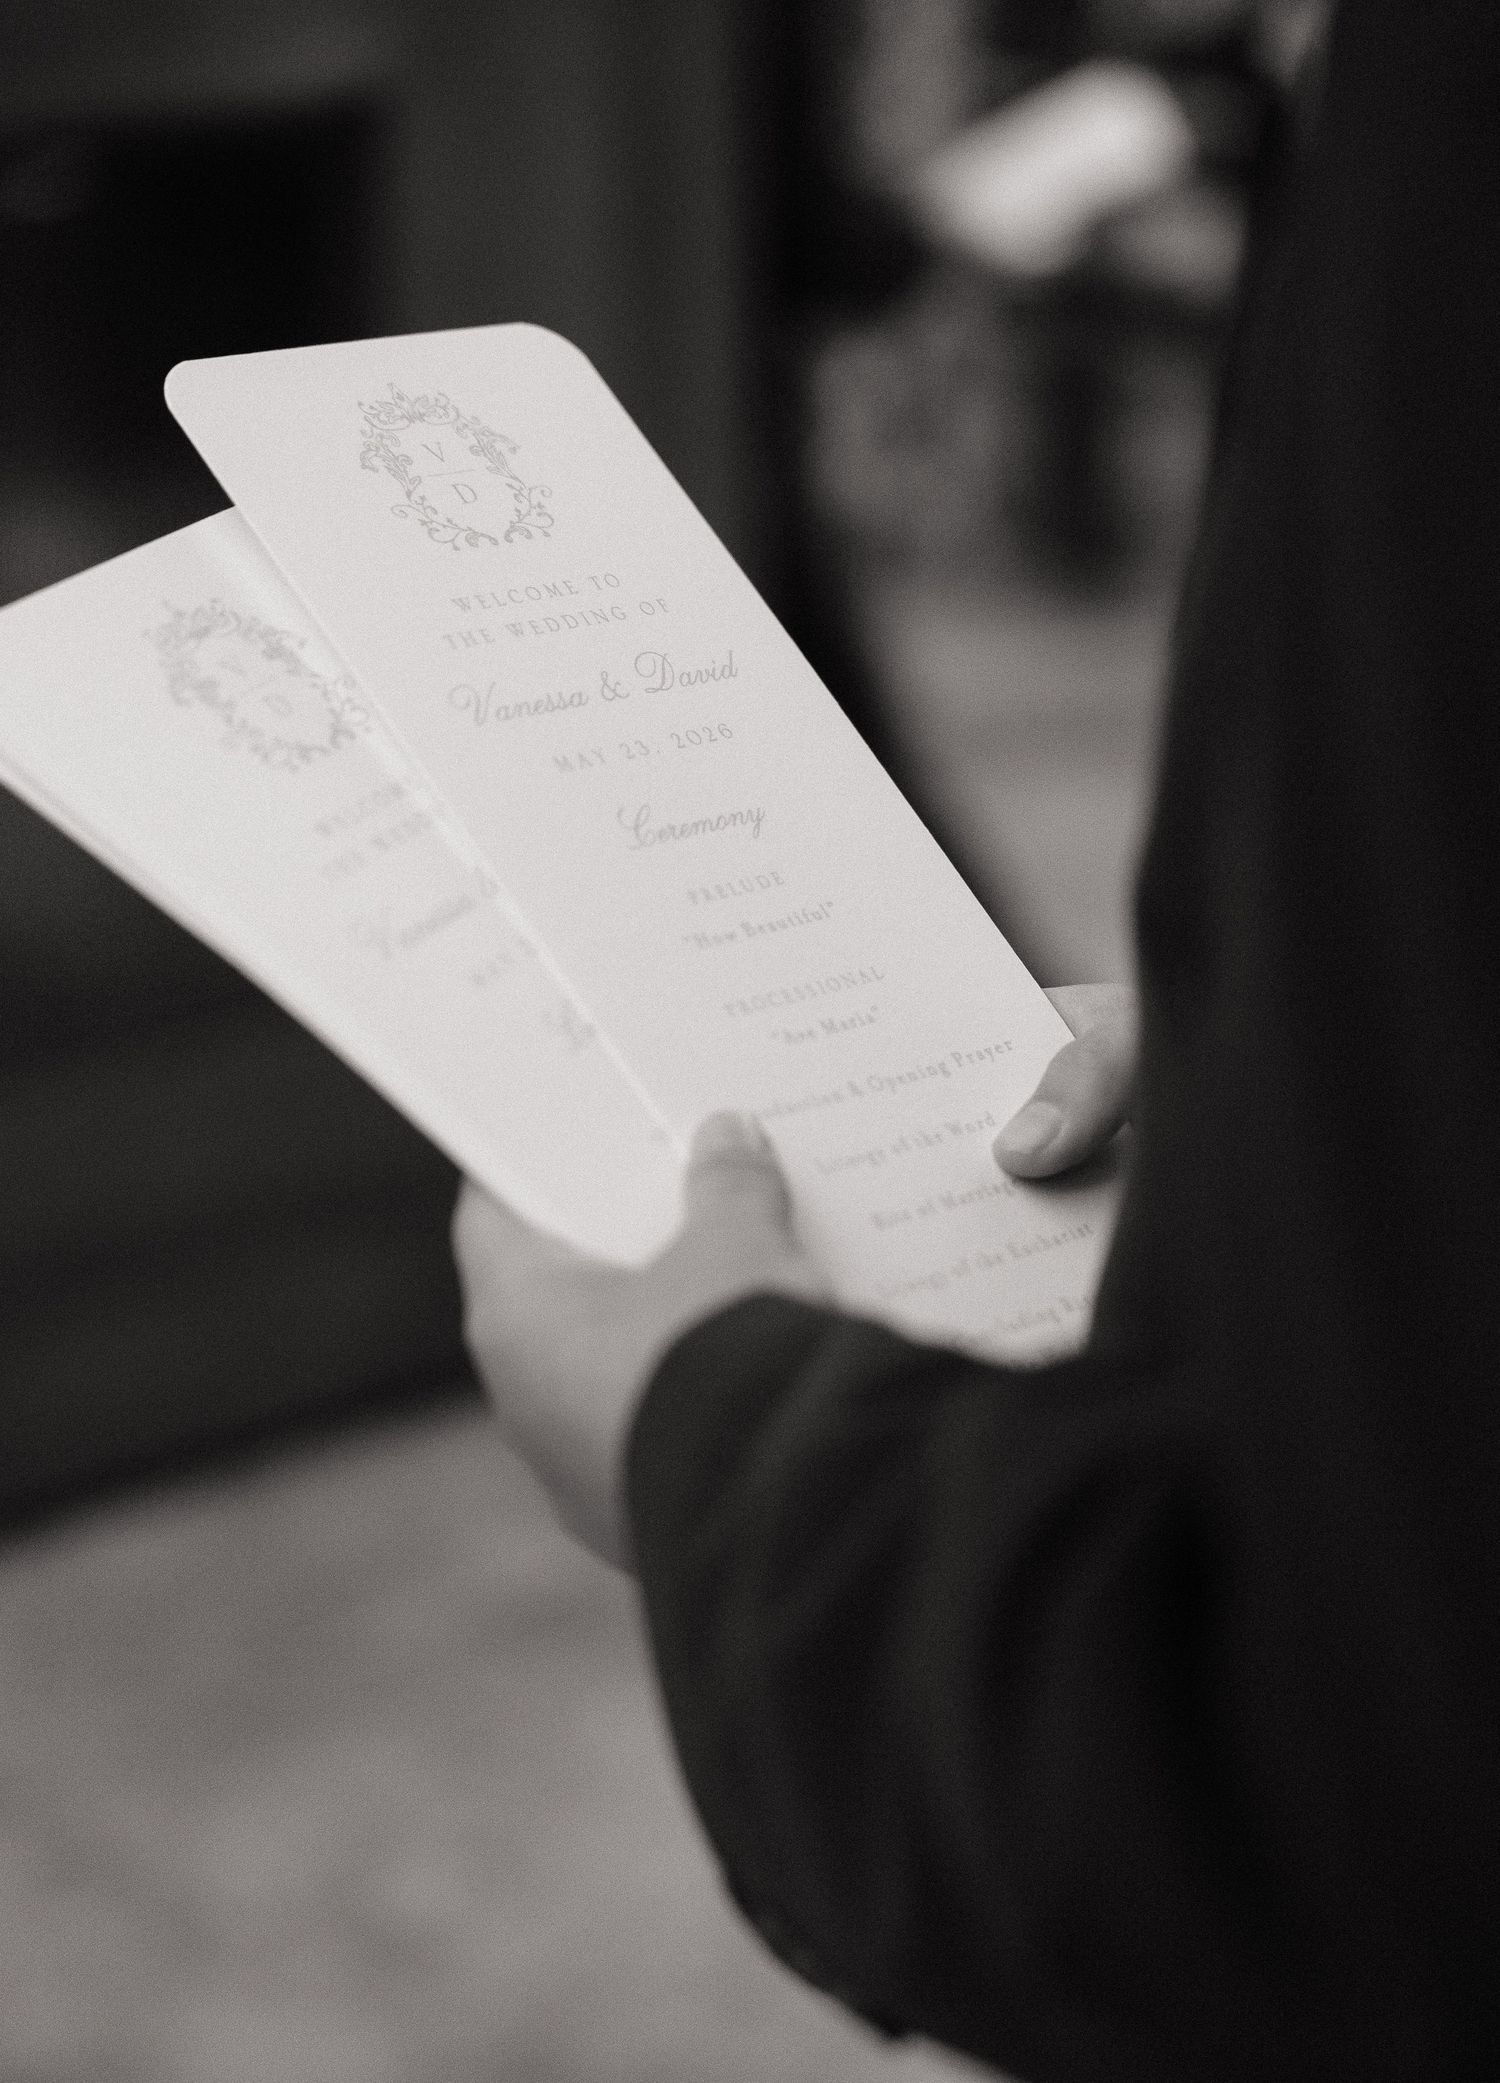 V
D
WELCOME TO
THE WEDDING OF
Vanessa & David
MAY 23. 2026
Ceremony
PRELUDE
"How Beautiful"
PROCESSIONAL
"Ave Maria"
& Opening Prayer
Liturgy of the Word
Rite of
Liturgy of the Eucharist